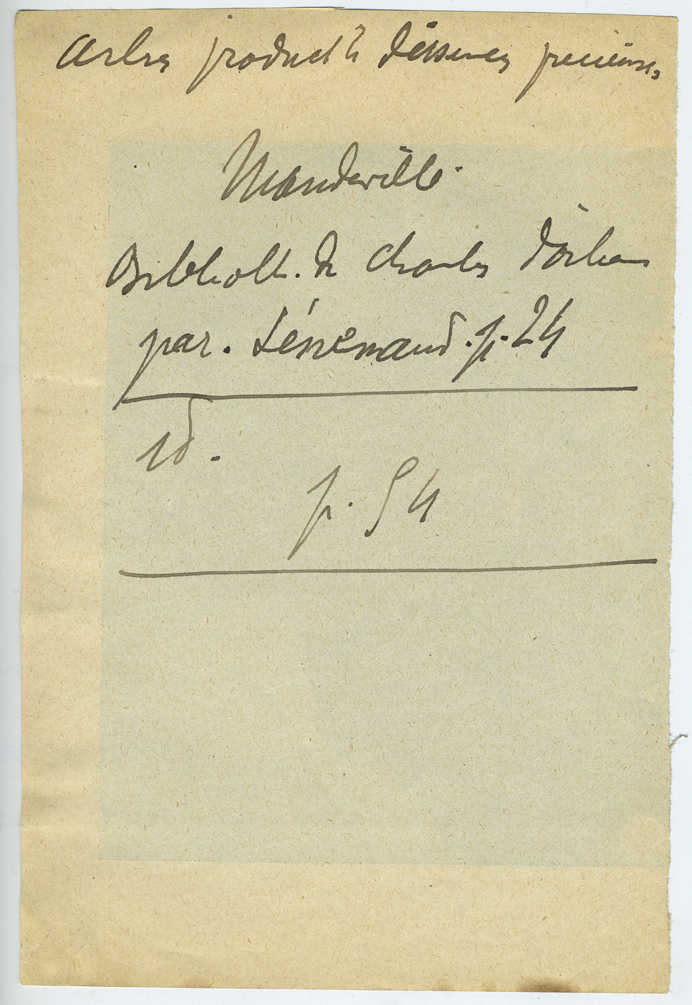 Arbres product. d'essences précieuses
Mandeville.
Biblioth. de Charles d'Orléans
par. Sénemaud. p. 24
id.
p. 54